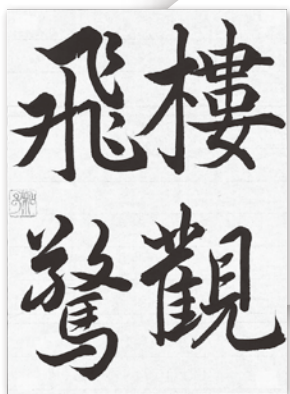 樓觀
飛驚